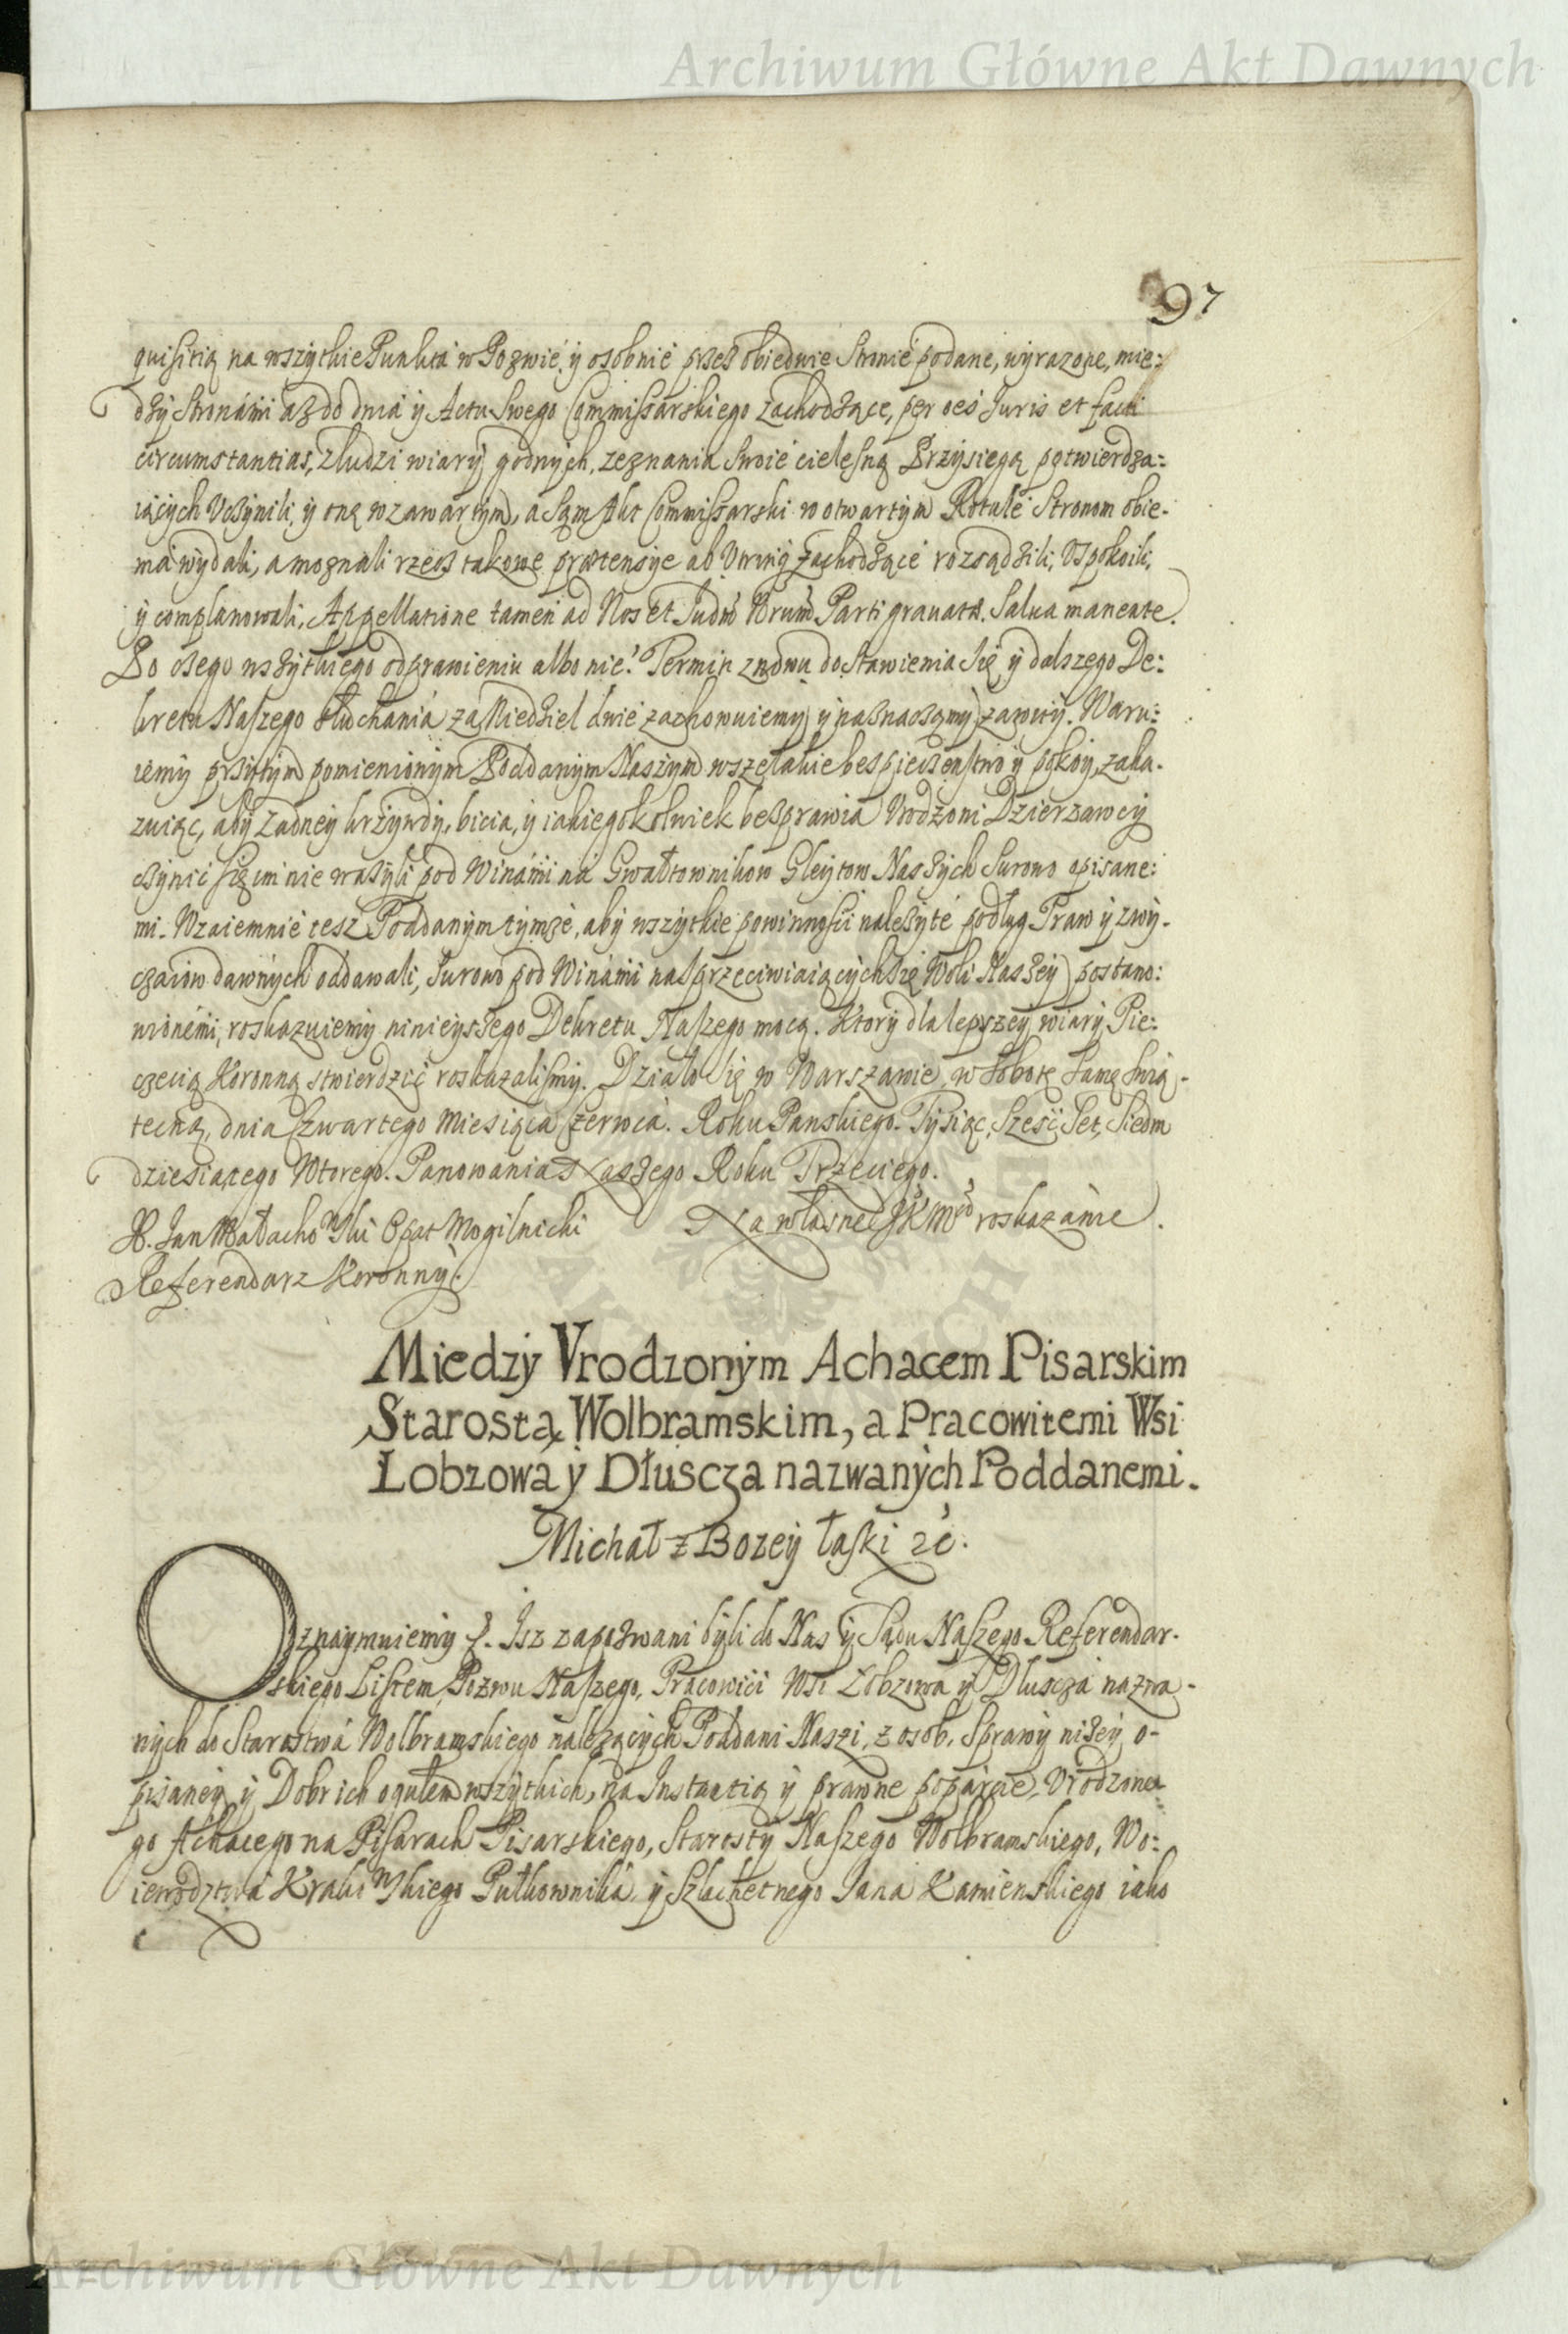 Archiwum Główne Akt Dawnych
97
quisitią na wszytkie Punkta w Pozwie, y osobnie przez obiedwie Stronie podane, wyrazone, mie:
dzy Stronámi asz do dniá y Actu Swego Commissarskiego zachodzące, per oes Juris et facti
circumstantias, z ludzi wiary godnych, zeznania swoie cielesną Przysięgą potwierdza:
iących Uczynili, y oną w zawartym, a sąm Akt Commissarski w otwartym Rotule Stronom obie-
má wydali, a moznali rzecz takowe praetensye ab Utrinq zachodzące rozsądzili, Uspokoili,
y complanowali, Appellatione tamen ad Nos et Judm Nrum Parti gravatae Salva manente.
Po czego wszytkiego odprawieniu albo nie? Termin znowu do stawienia się y dalszego De:
kretu Naszego słuchaniá zá Niedziel dwie zachowuiemy y naznaczamy zawity. Waru:
iemy przytym pomienionym Poddanym Naszym wszelakie bespieczenstwo y pokoy, zaka-
zuiąc, aby zadney krzywdy, bicia, y iakiegokolwiek bezprawia Urodzoni Dzierzawcy
czynić się im nie wazyli pod Winámi ná Gwałtownikow Gleytow Naszych Surowo opisane:
mi. Wzaiemnie tesz Poddanym tymze, aby wszytkie powinnosci nalezyte podług Praw y zwy-
czaiow dawnych oddawali, surowo pod Winámi na sprzeciwiaiących się Woli Naszey postano:
wionémi, roskazuiemy ninieyszego Dekretu Naszego mocą. Ktory dla lepszey wiary Pie:
częcią Koronną stwierdzić roskazalismy. Działo się w Warszawie, w Sobotę Samę Swią-
teczną, dnia Czwartego Miesiąca Czerwca. Roku Panskiego. Tysiąc, Szesć Set, Siedm
dziesiątego Wtorego. Panowania Naszego Roku Trzeciego.
X. Jan Małachowski Opat Mogilnicki Na własne JKMci roskazánie.
Referendarz Koronny.
Miedzy Vrodzonym Achacem Pisarskim
Starostą Wolbramskim, a Pracowitemi Wsi
Łobzowa y Dłuscza nazwanych Poddanemi.
Michał z Bozey łaski &c.
Oznaymuiemy &. Isz zapozwani byli do Nas y Sądu Naszego Referendar-
skiego Listem Pozwu Naszego, Pracowići Wsi Łobzowa y Dłuscza nazwa-
nych do Starostwá Wolbramskiego nalezących Poddani Naszi, z osob, Sprawy nizey o-
pisaney y Dobr ich ogułem wszytkich, na Instantią y prawne poparcie, Vrodzone-
go Achacego na Pisarach Pisarskiego, Starosty Naszego Wolbramskiego, Wo:
iewodztwá Krakowskiego Pułkowniká y Szlachetnego Jana Kamienskiego iako
Archiwum Główne Akt Dawnych